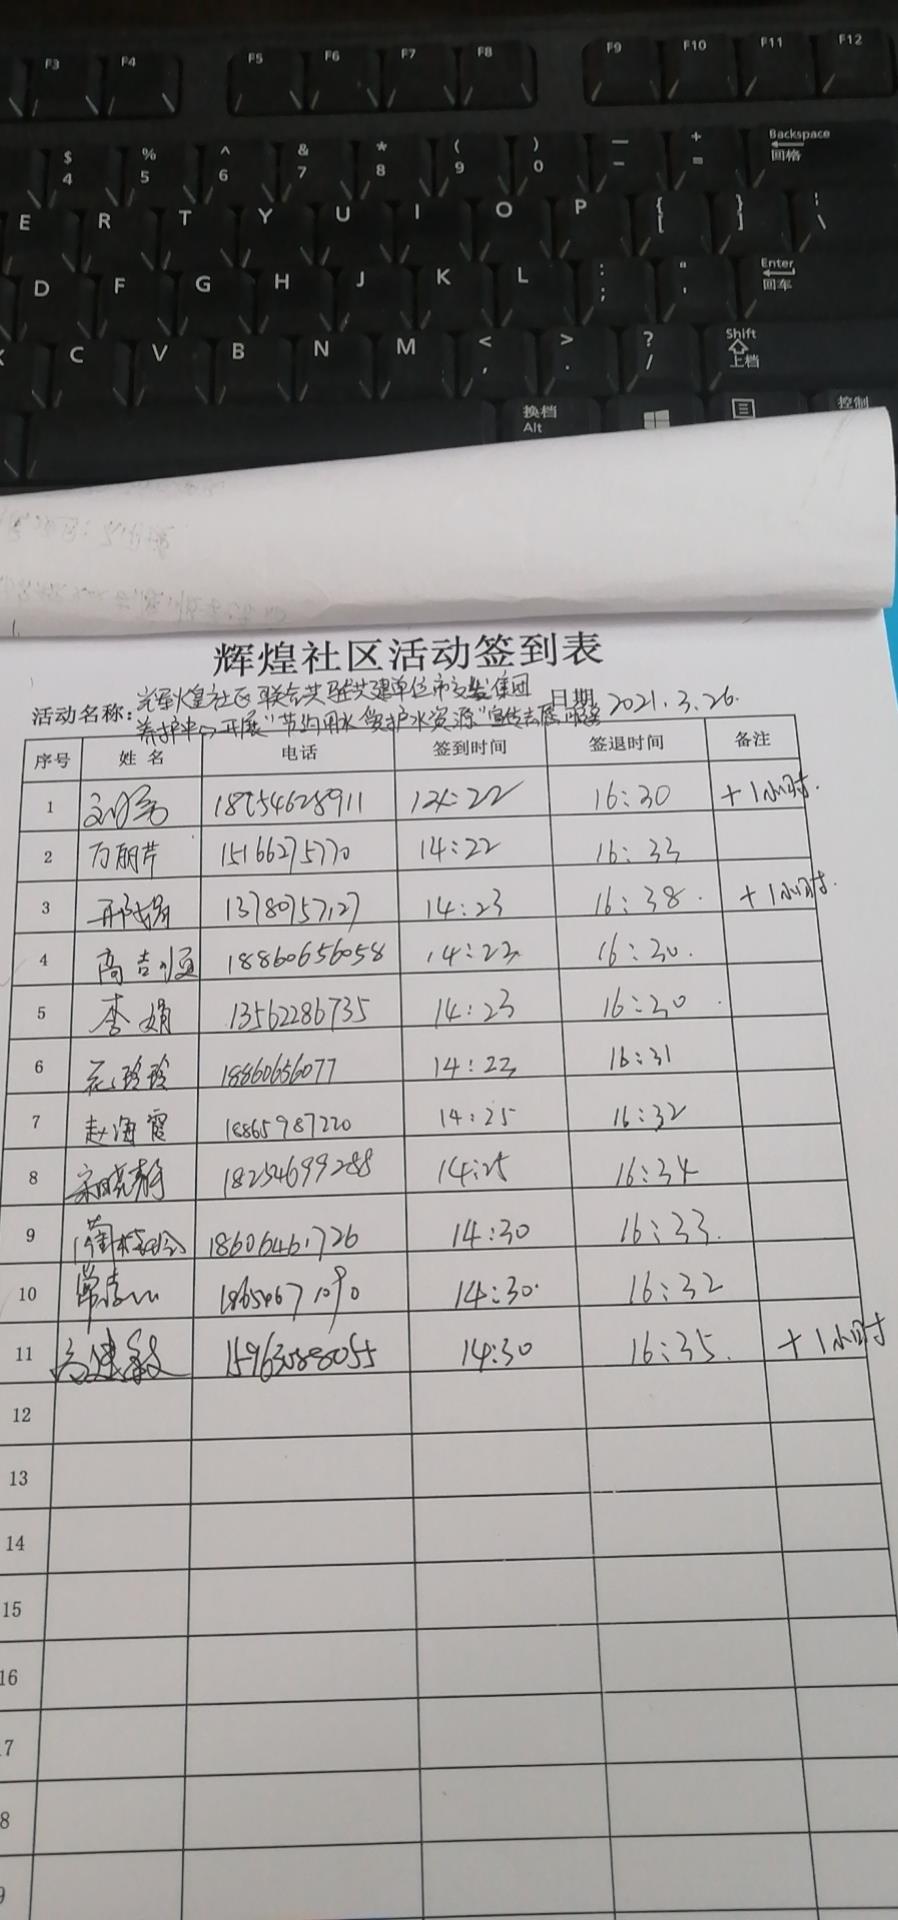 F3 F4 F5 F6 F7 F8 F9 F10 F11 F12
$ 4 % 5 ^ 6 & 7 * 8 ( 9 ) 0 — - + = Backspace 回格
E R T Y U I O P { [ } ] ¦ \
D F G H J K L : ; " ' Enter 回车
C V B N M < , > . ? / Shift 上档
换档 Alt 控制
辉煌社区活动签到表
活动名称: 辉煌社区联合共驻共建单位市交发集团
养护中心开展"节约用水 爱护水资源"宣传志愿服务 日期 2021.3.26.
序号 姓名 电话 签到时间 签退时间 备注
1 18254628911 14:22 16:30 +1小时.
2 万朋芹 15166275770 14:22 16:33
3 13780757127 14:23 16:38. +1小时.
4 高吉顺 18860656058 14:23 16:30.
5 李娟 13562286735 14:23 16:30.
6 玲玲 18860656077 14:23 16:31
7 赵海霞 18865987220 14:25 16:32
8 宋晓静 18254699288 14:25 16:34
9 18606461726 14:30 16:33.
10 14:30. 16:32
11 15963088055 14:30 16:35. +1小时
12
13
14
15
16
7
8
9